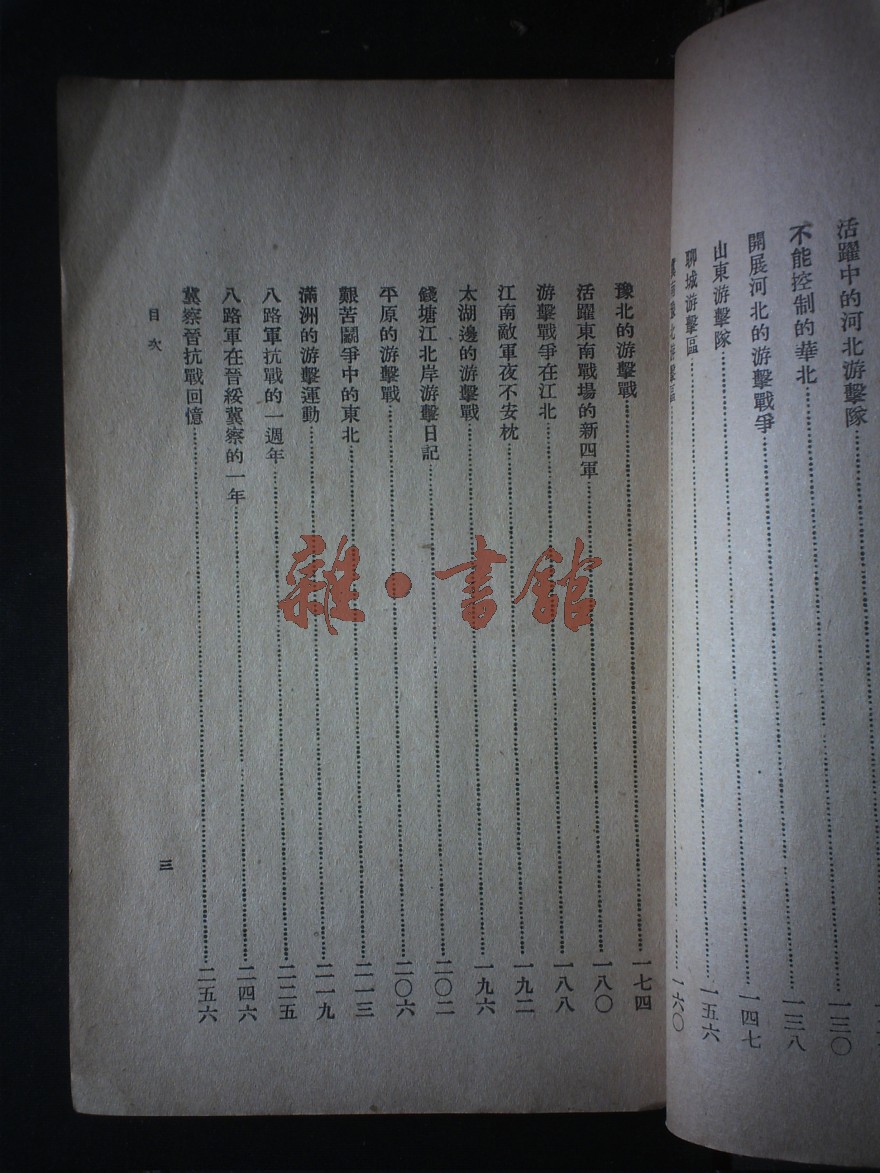 活躍中的河北游擊隊……一三〇
不能控制的華北……一三八
開展河北的游擊戰爭……一四七
山東游擊隊……一五六
聊城游擊區……一六〇
豫北的游擊戰……一七四
活躍東南戰場的新四軍……一八〇
游擊戰爭在江北……一八八
江南敵軍夜不安枕……一九二
太湖邊的游擊戰……一九六
錢塘江北岸游擊日記……二〇二
平原的游擊戰……二〇六
艱苦鬭爭中的東北……二一三
滿洲的游擊運動……二一九
八路軍抗戰的一週年……二二五
八路軍在晉綏冀察的一年……二四六
冀察晉抗戰回憶……二五六
目次
三
雜·書館